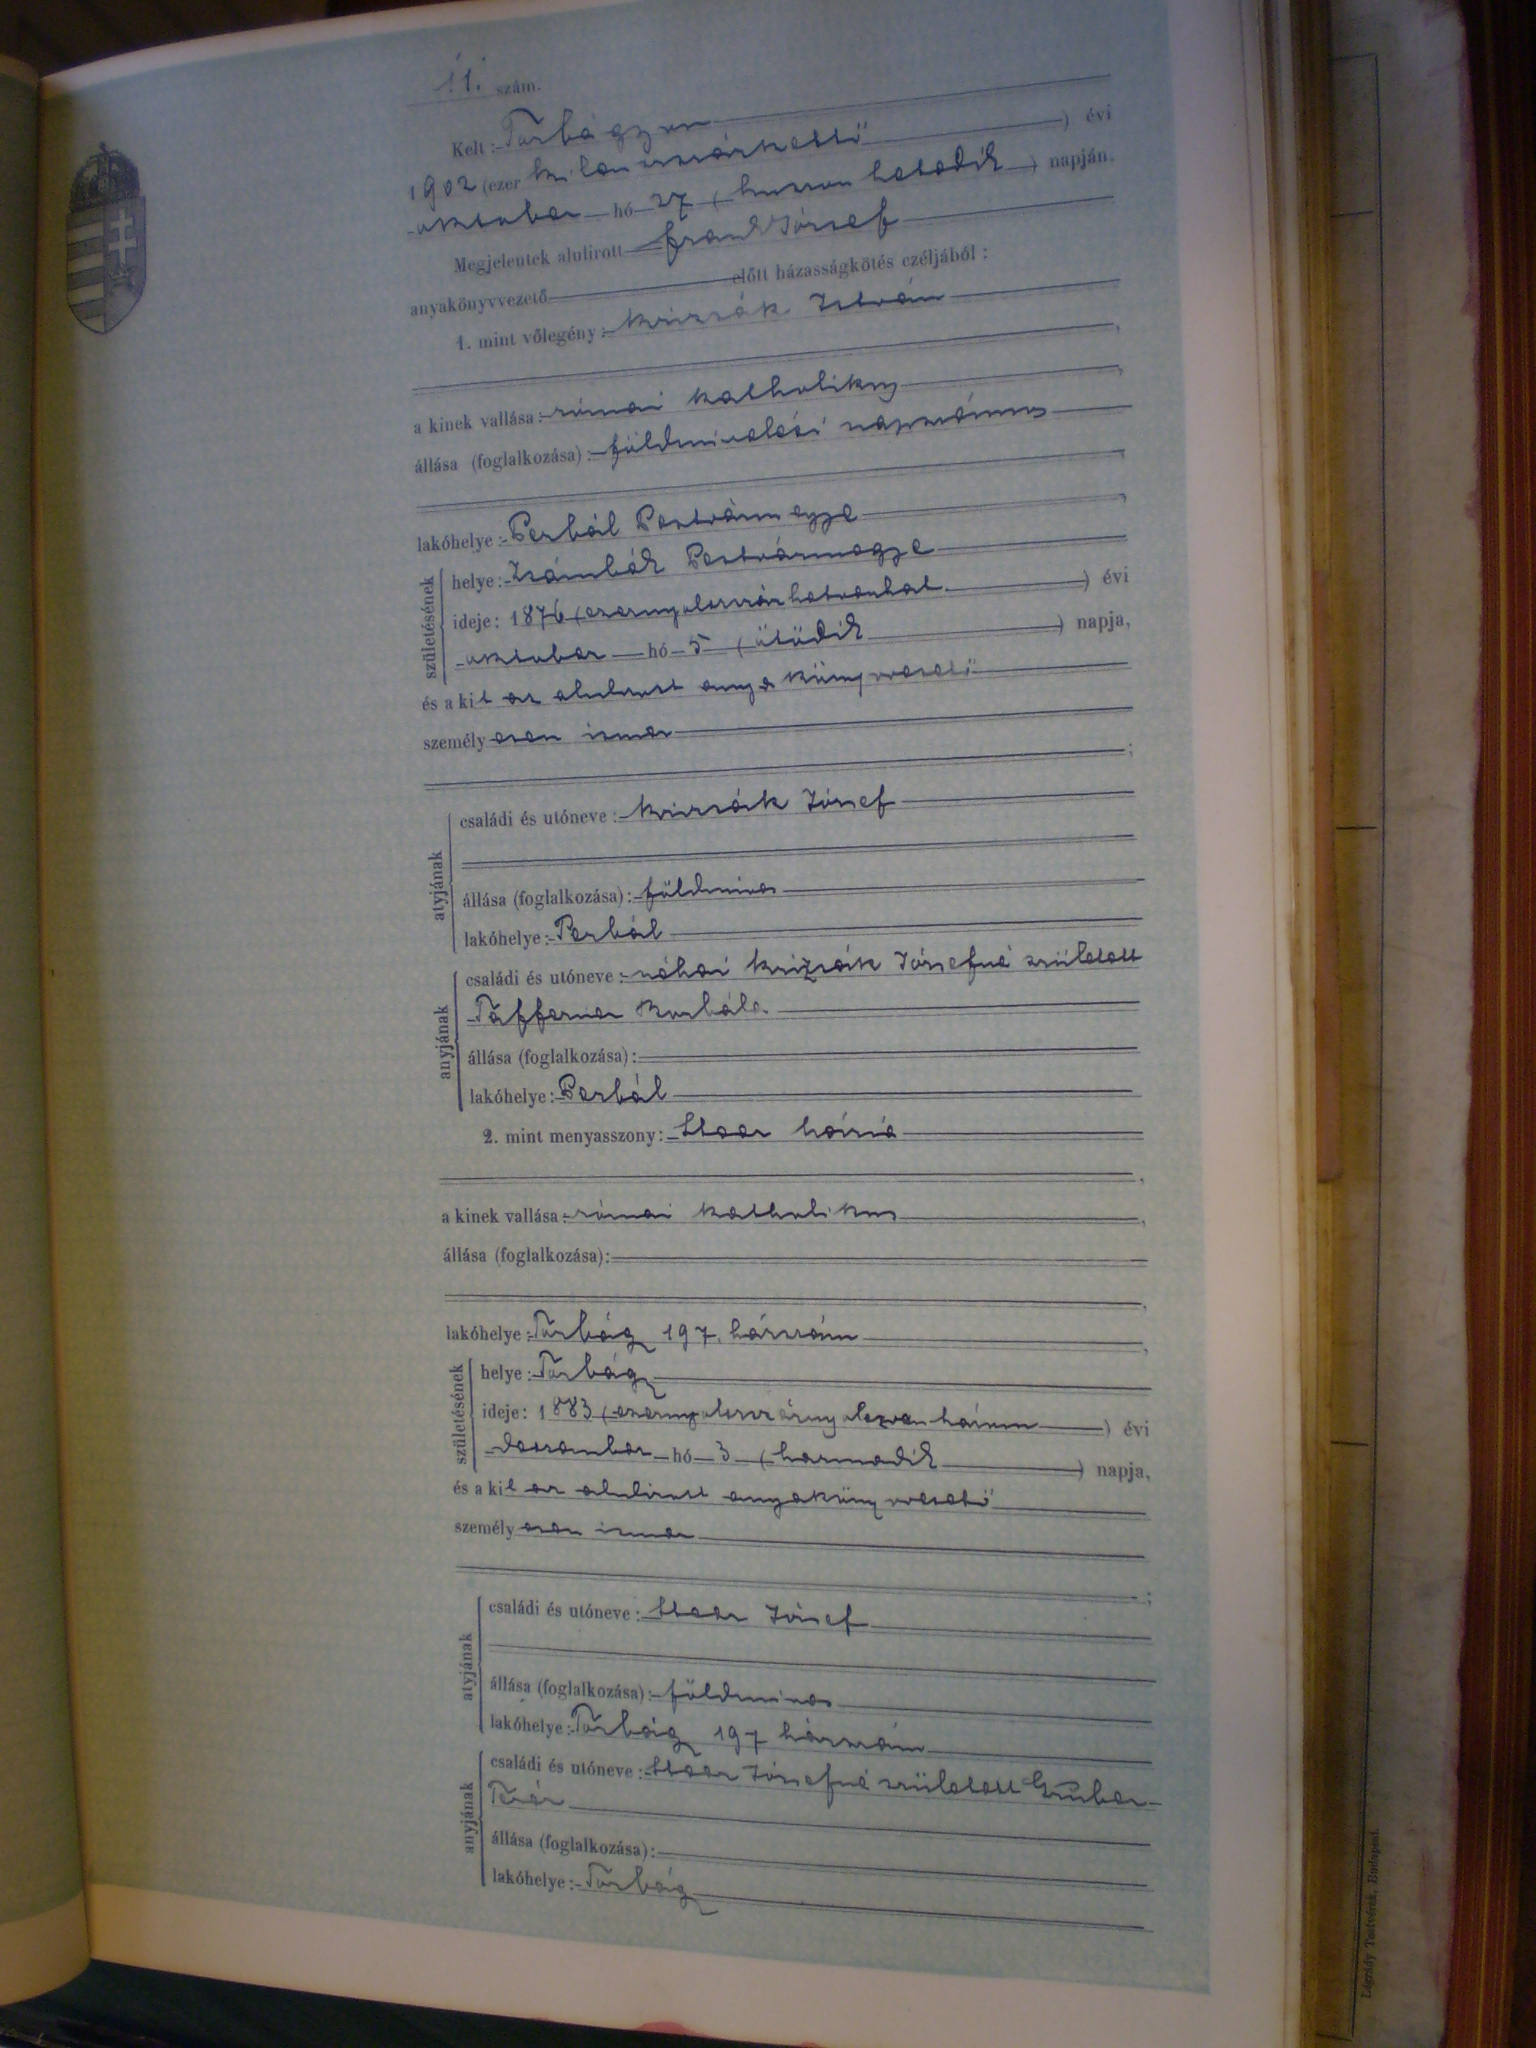 11. szám.
Kelt: Torbágyon
1902 (ezer kilenczszázkettő) évi
oktober hó 27 (huszon hetedik) napján.
Megjelentek alulirott Frank József
anyakönyvvezető előtt házasságkötés czéljából:
1. mint vőlegény: Krizsák István
a kinek vallása: római katholikus,
állása (foglalkozása): földmivelési napszámos
lakóhelye: Perbál Pestvármegye
születésének
helye: Zsámbék Pestvármegye
ideje: 1876 (ezernyolcszáz hetvenhat) évi
oktober hó 5 (ötödik) napja,
és a kit az alulirott anyakönyvvezető
személyesen ismer
;
atyjának
családi és utóneve: Krizsák József
állása (foglalkozása): földmives
lakóhelye: Perbál
anyjának
családi és utóneve: néhai Krizsák Józsefné született
Tafferner Borbála.
állása (foglalkozása):
lakóhelye: Perbál
2. mint menyasszony: Staar Mária
a kinek vallása: római katholikus,
állása (foglalkozása):
lakóhelye: Torbágy 197. házszám,
születésének
helye: Torbágy
ideje: 1883 (ezernyolcszáznyolczvanhárom) évi
deczember hó 3 (harmadik) napja,
és a kit az alulirott anyakönyvvezető
személyesen ismer
;
atyjának
családi és utóneve: Staar József
állása (foglalkozása): földmives
lakóhelye: Torbágy 197 házszám
anyjának
családi és utóneve: Staar Józsefné született Gruber
Teréz
állása (foglalkozása):
lakóhelye: Torbágy
Légrády Testvérek, Budapest.